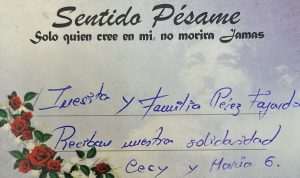 Sentido Pésame
Solo quien cree en mi, no morira Jamas
Inesita y Familia Pérez Fajardo
Reciban nuestra solidaridad
Cecy y María G.